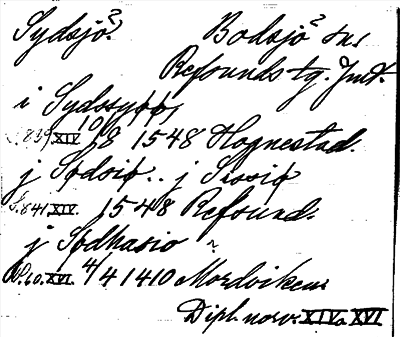 Sydsjö². Bodsjö² sn.
Refsunds tg. Jmt.
i Sydssyøø,
S. 839 XIV 10/8 1548 Hognestad.
j Sødsiø.. j Siøsiø
S. 841. XIV. 1548 Refsund.
j Sødhasio ~
P. 60. XVI. 4/4 1410 Mordviken.
Dipl. norv. XIV o XVI